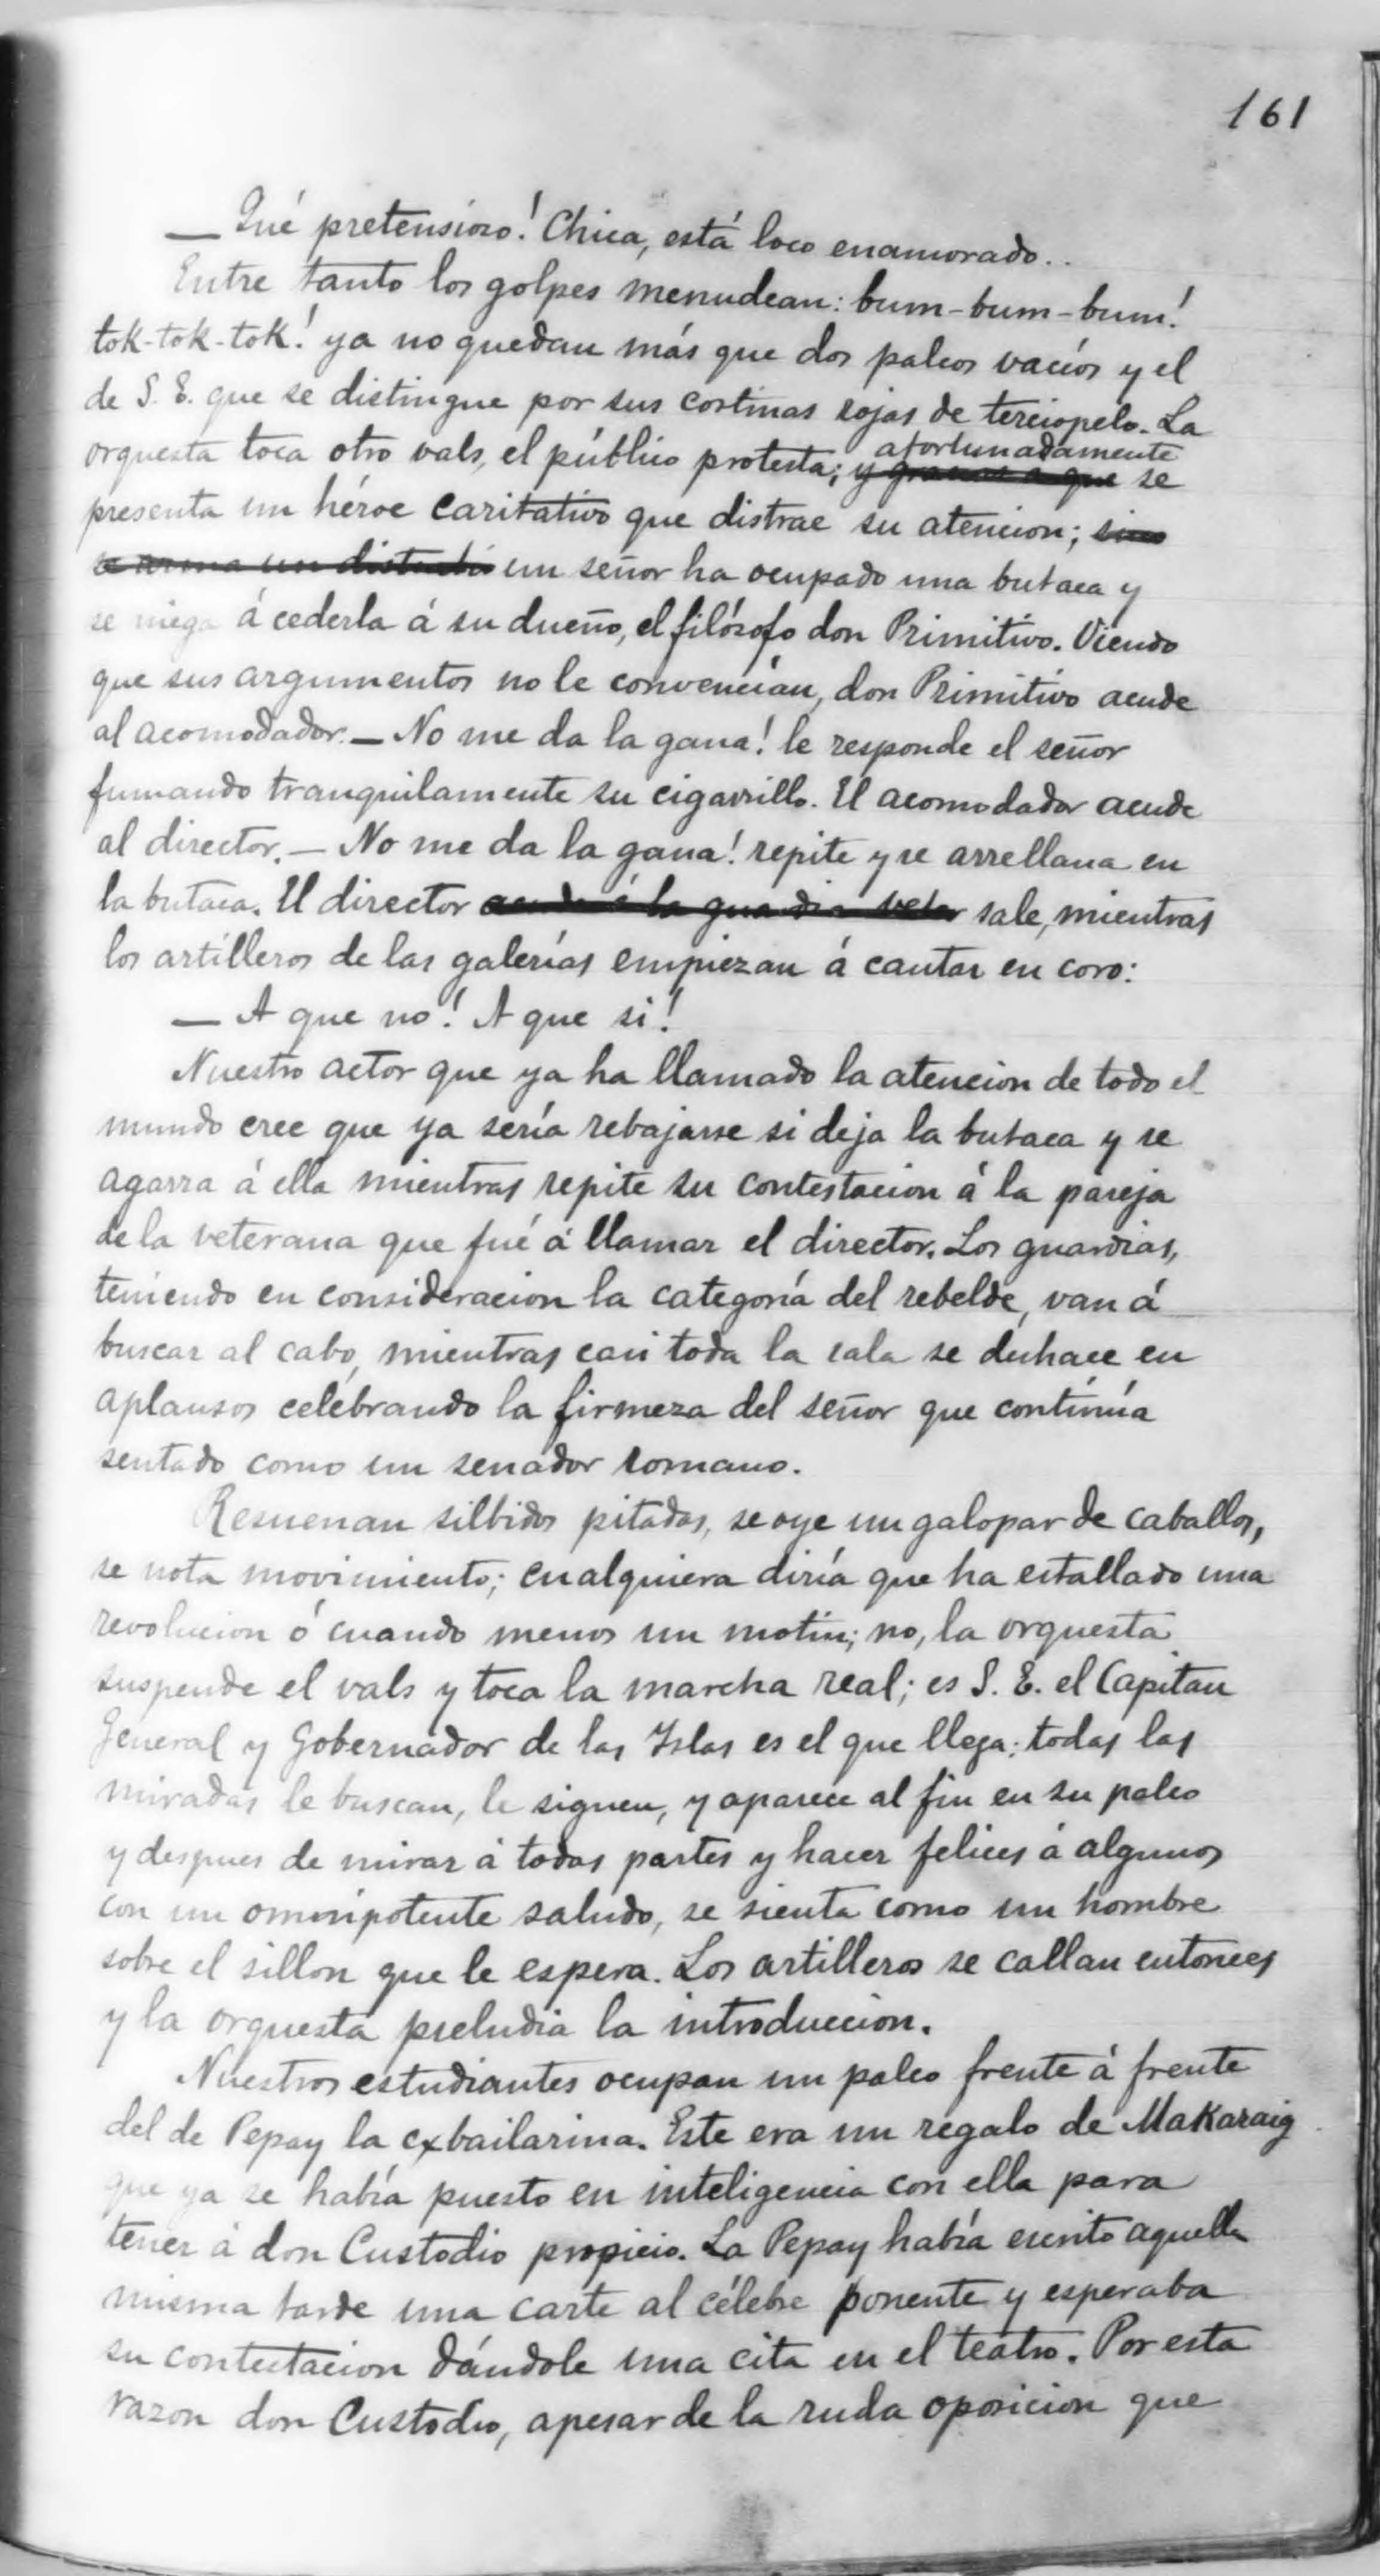 161
— Qué pretensioso! Chica, está loco enamorado..
Entre tanto los golpes menudean: bum-bum-bum!
tok-tok-tok! ya no quedan más que dos palcos vacíos y el
de S. E. que se distingue por sus cortinas rojas de terciopelo. La
orquesta toca otro vals, el público protesta; afortunadamente
y gracias a que se
presenta un héroe caritativo que distrae su atencion; sino
se arma un disturbio un señor ha ocupado una butaca y
se niega á cederla á su dueño, el filósofo don Primitivo. Viendo
que sus argumentos no le convencían, don Primitivo acude
al acomodador. — No me da la gana! le responde el señor
fumando tranquilamente su cigarrillo. El acomodador acude
al director. — No me da la gana! repite y se arrellana en
la butaca. El director acude á la guardia veter sale, mientras
los artilleros de las galerías empiezan á cantar en coro:
— A que no! A que si!
Nuestro actor que ya ha llamado la atencion de todo el
mundo cree que ya sería rebajarse si deja la butaca y se
agarra á ella mientras repite su contestacion á la pareja
de la veterana que fué á llamar el director. Los guardias,
teniendo en consideracion la categoría del rebelde, van á
buscar al cabo, mientras casi toda la sala se deshace en
aplausos celebrando la firmeza del señor que continúa
sentado como un senador romano.
Resuenan silbidos pitadas, se oye un galopar de caballos,
se nota movimiento; cualquiera diría que ha estallado una
revolucion ó cuando menos un motin; no, la orquesta
suspende el vals y toca la marcha real; es S. E. el Capitan
General y Gobernador de las Islas es el que llega: todas las
miradas le buscan, le siguen, y aparece al fin en su palco
y despues de mirar á todas partes y hacer felices á algunos
con un omnipotente saludo, se sienta como un hombre
sobre el sillon que le espera. Los artilleros se callan entonces
y la orquesta preludia la introduccion.
Nuestros estudiantes ocupan un palco frente á frente
del de Pepay la exbailarina. Este era un regalo de Makaraig
que ya se había puesto en inteligencia con ella para
tener á don Custodio propicio. La Pepay había escrito aquella
misma tarde una carte al célebre ponente y esperaba
su contestacion dándole una cita en el teatro. Por esta
razon don Custodio, apesar de la ruda oposicion que